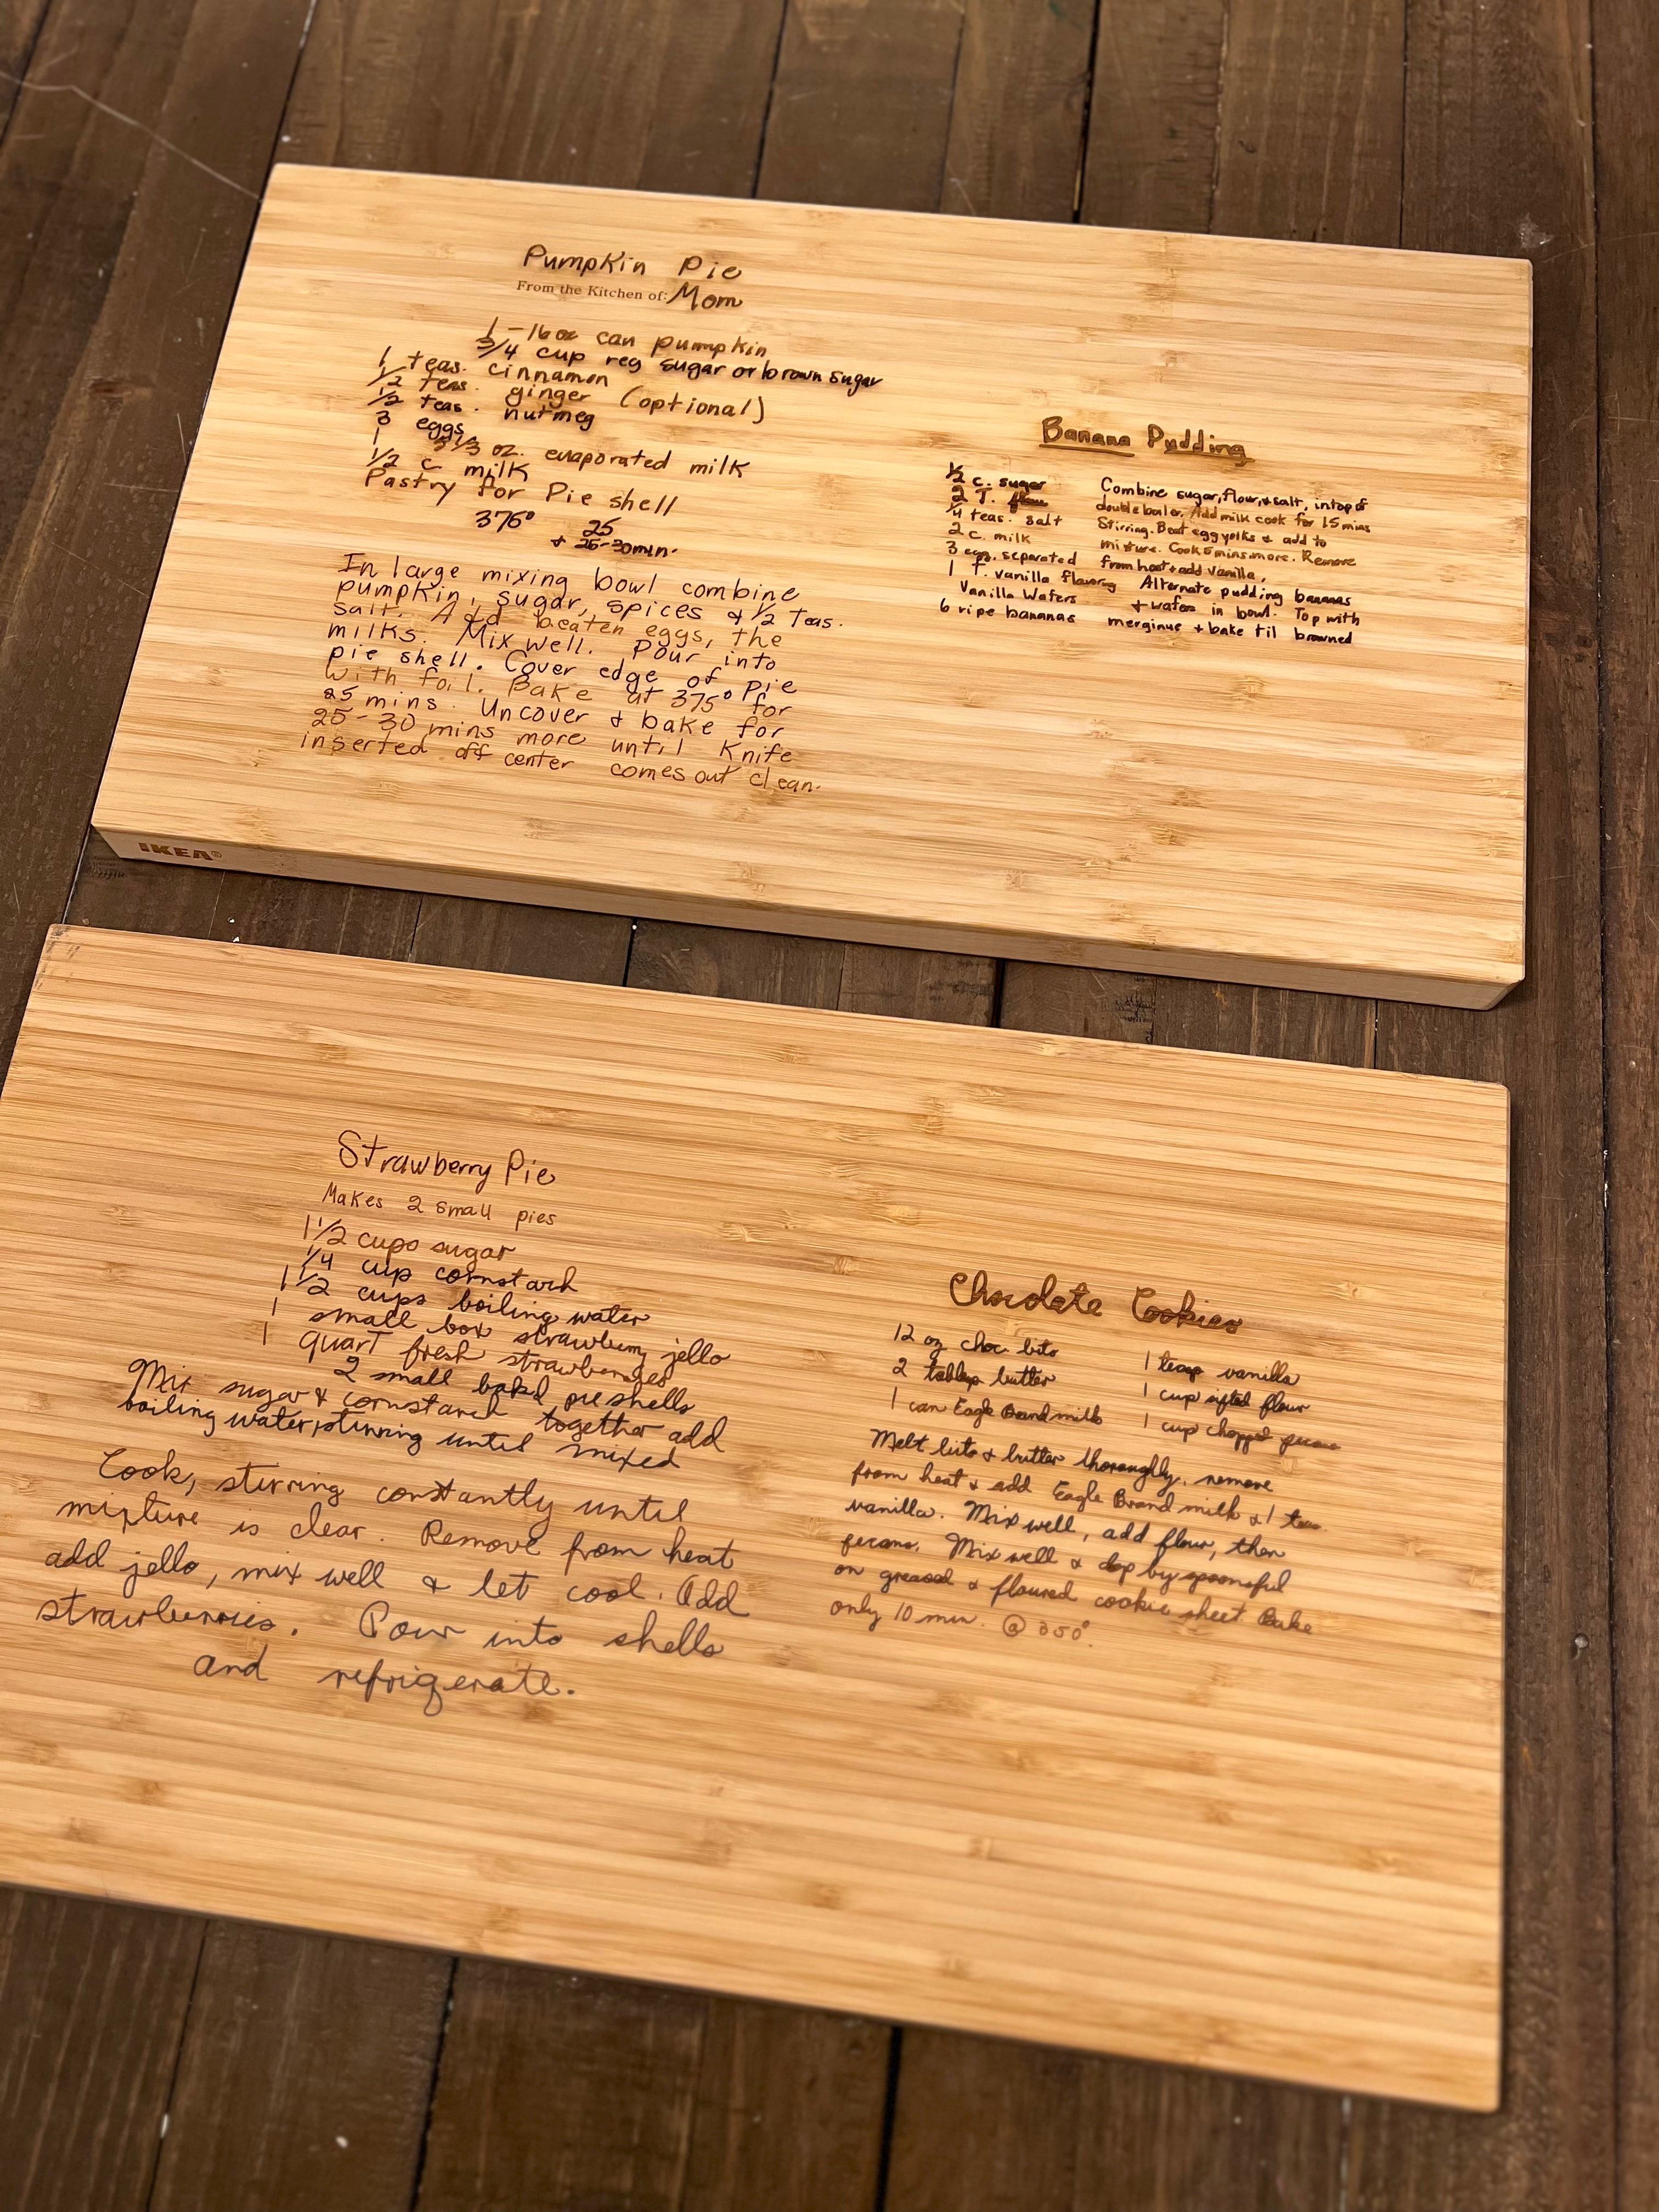 Pumpkin Pie
From the Kitchen of: Mom
1 - 16 oz can pumpkin
3/4 cup reg sugar or brown sugar
1 teas. cinnamon
1/2 teas. ginger (optional)
1/2 teas. nutmeg
3 eggs
1 5 1/3 oz. evaporated milk
1/2 c. milk
Pastry for Pie shell
375° 25
+ 25-30 min.
In large mixing bowl combine
pumpkin, sugar, spices & 1/2 Teas.
salt. Add beaten eggs, the
milks. Mix well. Pour into
pie shell. Cover edge of pie
with foil. Bake at 375° for
25 mins. Uncover & bake for
25-30 mins more until Knife
inserted off center comes out clean.
Banana Pudding
1/2 c. sugar
2 T. flour
1/4 teas. salt
2 c. milk
3 egg, separated
1 T. vanilla flavoring
Vanilla Wafers
6 ripe bananas
Combine sugar, flour, & salt, in top of
double boiler. Add milk cook for 15 mins
Stirring. Beat egg yolks & add to
mixture. Cook 5 mins more. Remove
from heat + add vanilla.
Alternate pudding bananas
+ wafers in bowl. Top with
meringue + bake til browned
IKEA®
Strawberry Pie
Makes 2 small pies
1 1/2 cups sugar
1/4 cup cornstarch
1 1/2 cups boiling water
1 small box strawberry jello
1 quart fresh strawberries
2 small baked pie shells
Mix sugar & cornstarch together add
boiling water, stirring until mixed
Cook, stirring constantly until
mixture is clear. Remove from heat
add jello, mix well & let cool. Add
strawberries. Pour into shells
and refrigerate.
Chocolate Cookies
12 oz choc. bits
2 tablesp butter
1 can Eagle Brand milk
1 teasp vanilla
1 cup sifted flour
1 cup chopped pecans
Melt bits & butter thoroughly, remove
from heat & add Eagle Brand milk & 1 teas.
vanilla. Mix well, add flour, then
pecans. Mix well & drop by spoonful
on greased & floured cookie sheet Bake
only 10 min. @ 350°.